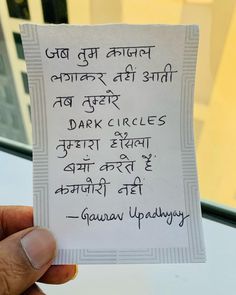 जब तुम काजल
लगाकर नहीं आती
तब तुम्हारे
DARK CIRCLES
तुम्हारा हौसला
बयाँ करते हैं
कमजोरी नहीं
—Gaurav Upadhyay